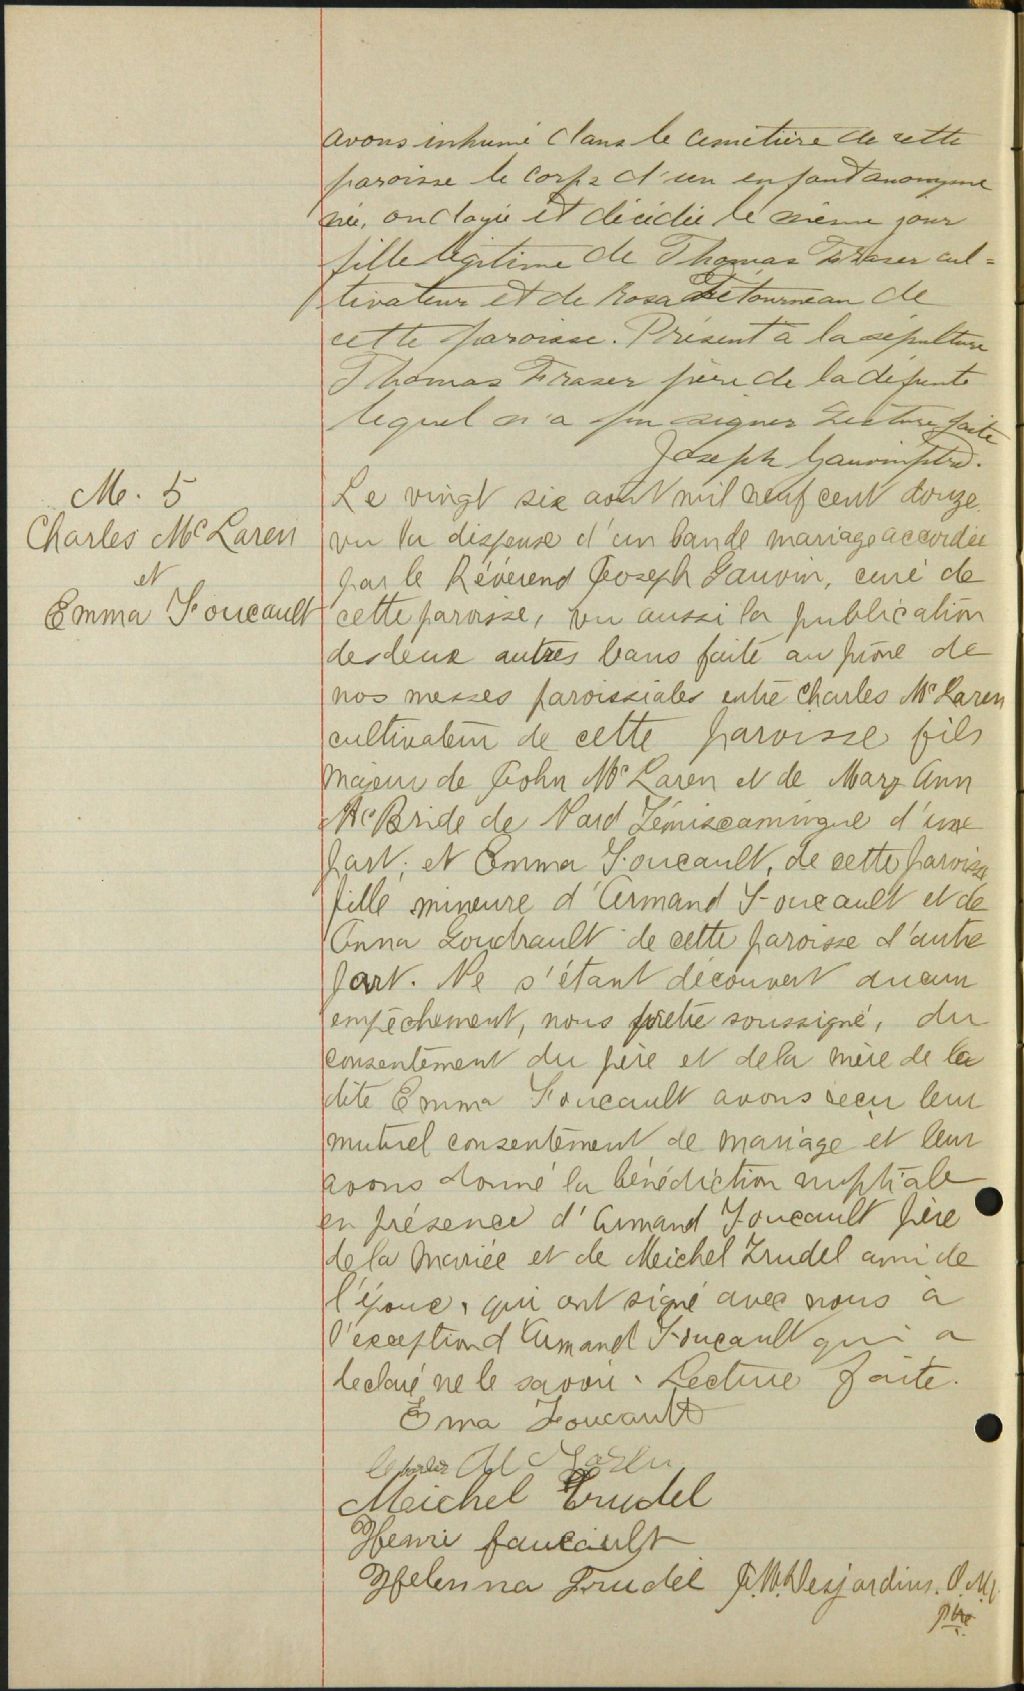 avons inhumé dans le cimetière de cette
paroisse le corps d'un enfant anonyme
née, ondoyée et décédée le même jour
fille légitime de Thomas Fraser cul=
tivateur et de Rosa Létourneau de
cette paroisse. Présent à la sépulture
Thomas Fraser père de la défunte
lequel n'a pu signer Lecture faite
Joseph Gauvin ptre.
M. 5
Charles McLaren
et
Emma Foucault
Le vingt six août mil neuf cent douze
vu la dispense d'un band de mariage accordée
par le Révérend Joseph Gauvin, curé de
cette paroisse, vu aussi la publication
des deux autres bans faite au prône de
nos messes paroissiales entre Charles McLaren
cultivateur de cette paroisse fils
majeur de John McLaren et de Mary Ann
McBride de Nord Témiscamingue d'une
part; et Emma Foucault, de cette paroisse
fille mineure d'Armand Foucault et de
Anna Goudrault de cette paroisse d'autre
part. Ne s'étant découvert aucun
empêchement, nous prêtre soussigné, du
consentement du père et de la mère de la
dite Emma Foucault avons reçu leur
mutuel consentement de mariage et leur
avons donné la bénédiction nuptiale
en présence d'Armand Foucault père
de la mariée et de Meichel Trudel ami de
l'époux, qui ont signé avec nous à
l'exception d'Armand Foucault qui a
declaré ne le savoir. Lecture faite.
Ema Foucault
Mc
Meichel Trudel
Henri faucault
Helenna Trudel J.M. Desjardins. O.M.I.
ptre